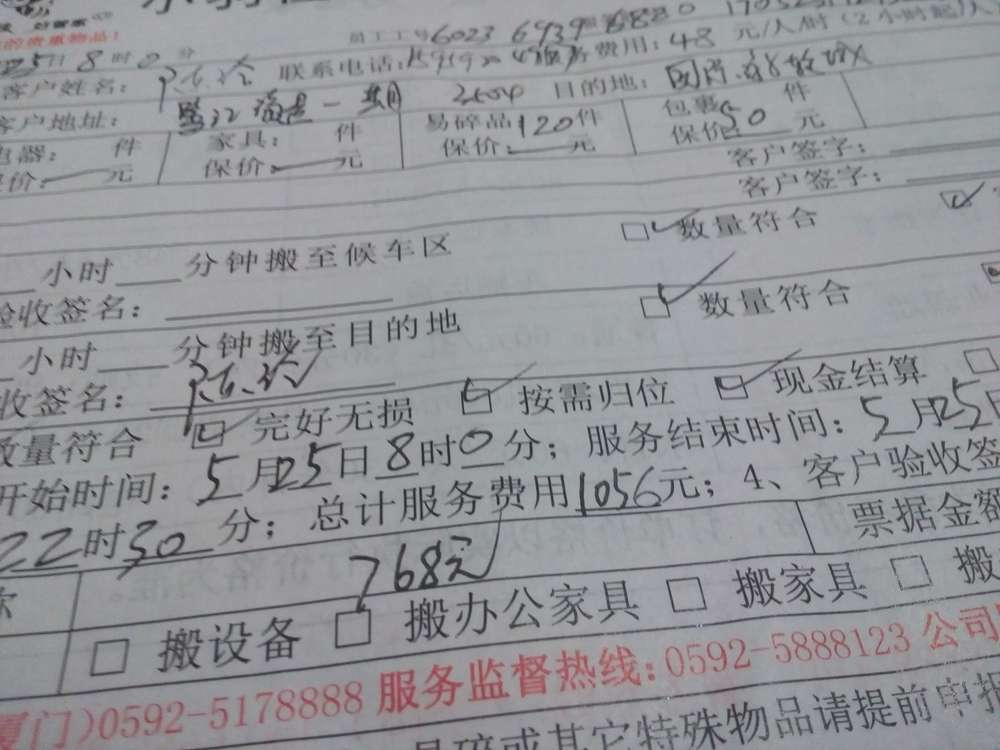 的贵重物品!
员工工号6023 6939 6880
25日8时0分
客户姓名: 联系电话: 费用:48元/人/时(2小时起)
客户地址: 一期 2504 目的地:
电器: 件 家具: 件 易碎品120件 包裹50件
保价:元 保价:元 保价:元 保价元
客户签字:
客户签字:
小时 分钟搬至候车区 数量符合
验收签名:
小时 分钟搬至目的地 数量符合
收签名:
数量符合 完好无损 按需归位 现金结算
开始时间:5月25日8时0分;服务结束时间:5月25日
22时30分;总计服务费用1056元;4、客户验收签
768元 票据金额
搬设备 搬办公家具 搬家具 搬
厦门)0592-5178888服务监督热线:0592-5888123公司
易碎或其它特殊物品请提前申报